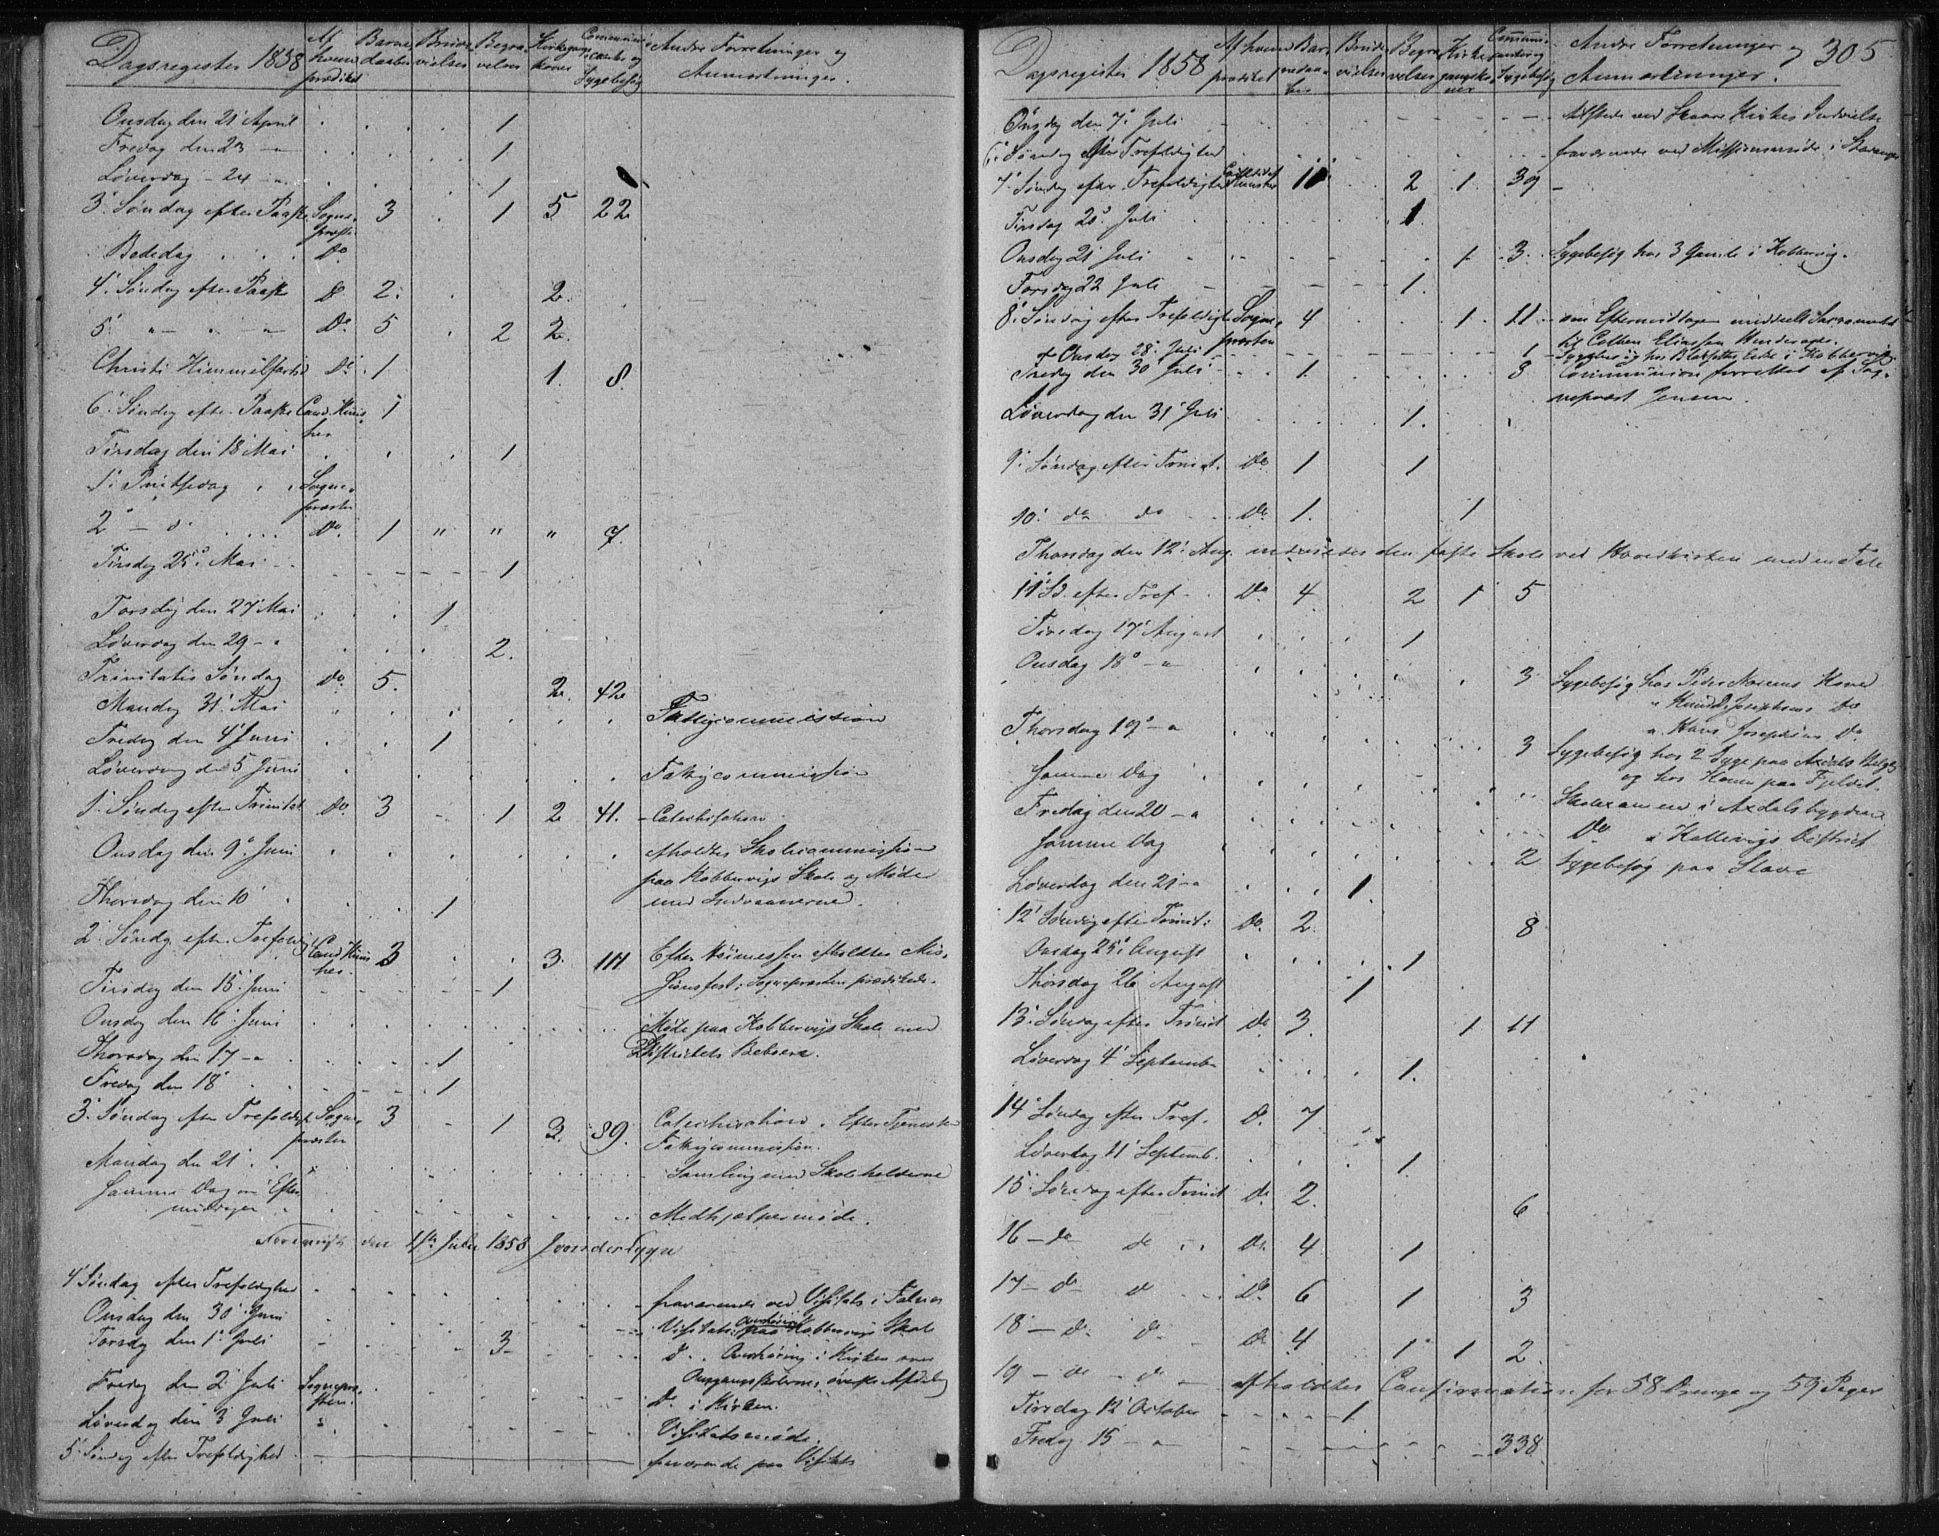 Dagsregister 1858 | Af hvem prædiket | Barnedaaber | Brudevielser | Begravelser | Kirkegangskoner | Communicanter og Sygebesøg | Andre Forretninger og Anmærkninger.
Onsdag den 21 April 1
Fredag den 23 - 1
Løverdag - 24 - 1
3. Søndag efter Paaske Sogne-præsten 3 1 5 22
Bededag Do
4. Søndag efter Paaske Do 2. 2.
5. - " - Do 5 2 2.
Christi Himmelfart Do 1 1. 8.
6. Søndag efter Paaske Cand. 1
Tirsdag den 18 Mai 1
1. Pintsedag Sogne-præsten
2. - d. Do. 1 " " " 7.
Tirsdag 25. Mai 1
Torsdag den 27 Mai 1
Løverdag den 29 - 2.
Trinitatis Søndag Do. 5. 2. 42
Mandag 31. Mai Fattigcommission
Fredag den 4 Juni 1
Løverdag den 5 Juni Fattigcommission
1. Søndag efter Trinitat. Do. 3 - 1 2 41. - Catechisation
Onsdag den 9. Juni afholdtes Skolecommission
paa Kobbervigs Skole og Møde
Thorsdag den 10 1 med Indvaanerne.
2. Søndag efter Trefoldig. Cand. 3 3. 111 Efter Høimessen afholdtes Mis-
Tirsdag den 15. Juni 1 sionsfest; Sognepræsten prædikede.
Onsdag den 16 Juni Møde paa Kobbervigs Skole med
Thorsdag den 17 - 1 Distriktets Beboere.
Fredag den 18 1
3. Søndag efter Trefoldigh. Sogne-præsten 3 - 1 3. 89. Catechisation. Efter Tjenesten
Fattigcommission.
Mandag den 21. Samling med Skoleholderne
Samme Dag om Eftermiddagen Medhjælpermøde.
den 4de Juli 1858
4 Søndag efter Trefoldighed fraværende ved Visitats i
Onsdag den 30 Juni Visitats paa Kobbervigs Skole
Torsdag den 1. Juli 3 - D. Overhøring i Kirken over
Omgangsskolernes øverste Afdeling
Fredag den 2 Juli Sognepræsten D. i Kirken.
Løverdag den 3 Juli " Visitatsmøde.
5. Søndag efter Trefoldighed fraværende paa Visitats
Dagsregister 1858 | Af hvem prædiket | Barnedaaber | Brudevielser | Begravelser | Kirkegangskoner | Communicanter og Sygebesøg | Andre Forretninger og Anmærkninger. 305
Onsdag den 7. Juli tilstede ved Kirkes Indvielse
6. Søndag efter Trefoldighed fraværende ved Missionsmøde i Stavanger
7. Søndag efter Trefoldighed Candidat 2 1. 39 -
Tirsdag 20. Juli 1.
Onsdag 21 Juli 1. 3. Sygebesøg hos 3 Gamle i Kobbervig.
Torsdag 22 Juli 1.
8. Søndag efter Trefoldigh. Sognepræsten 4 1 11 om Eftermiddagen meddelt Sacramentet
til
Onsdag 28. Juli 1 - Sygebesøg hos i Kobbervig
Fredag den 30 Juli 1. 8 Communion forrettet af Sog-
nepræst Jensen.
Løverdag den 31 Juli 1.
9. Søndag efter Trinit. Do 1 1
10. do do Do. 1. 1
Thorsdag den 12. Aug. indviedes den faste Skole ved Hovedkirken med en Tale
11. S. efter Tref. Do 4. 2 1 5
Tirsdag 17. August 1
Onsdag 18. - 3 Sygebesøg hos Peder
" Do
" Hans Do.
Thorsdag 19. - 3 Sygebesøg hos 2 Syge paa
og hos Konen paa Fjeldet.
Samme Dag Skolexamen i Axdalsbygden
Fredag den 20 - Do i Kallevigs District
Samme Dag 2 Sygebesøg paa
Løverdag den 21 - 1.
12. Søndag efter Trinit: Do. 2. 8
Onsdag 25. August 1
Thorsdag 26 August 1
13. Søndag efter Trinit Do 3. 1 11
Løverdag 4 Septemb. 1.
14. Søndag efter Tref. D. 7
Løverdag 11 Septemb. 1
15. Søndag efter Trinit Do 2. 6
16 - do do Do. 4 1
17 - do do Do. 6 1 3
18 - do. do. Do 4 1 1 2
19 - do - do afholdtes Confirmation for 58 Drenge og 59 Piger
Tirsdag 12 October 1.
Fredag 15 - 338